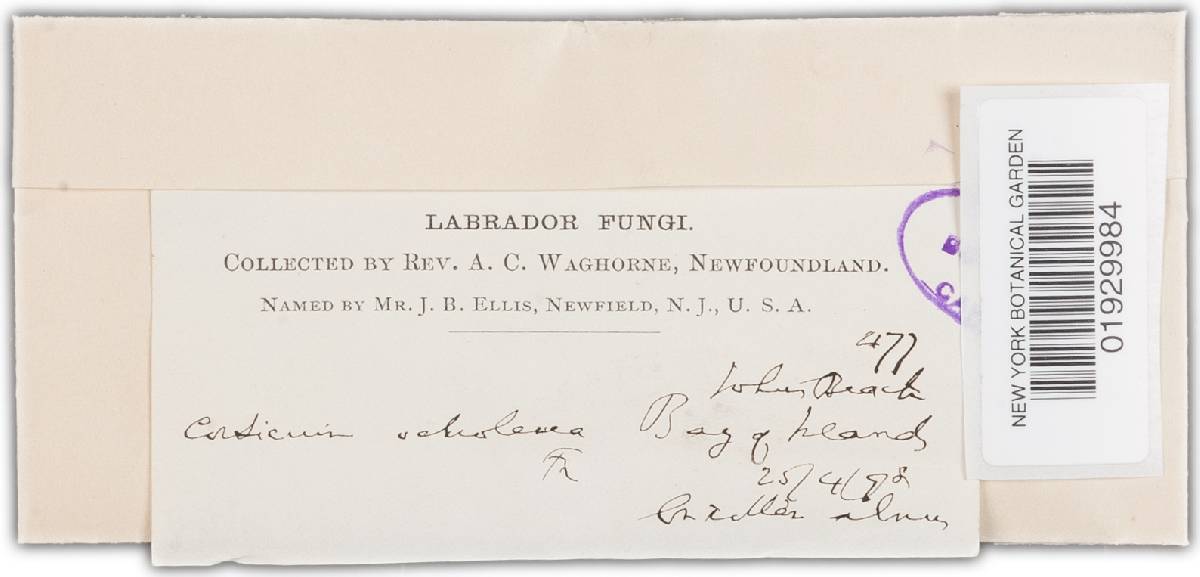 LABRADOR FUNGI.
COLLECTED BY REV. A. C. WAGHORNE, NEWFOUNDLAND.
NAMED BY MR. J. B. ELLIS, NEWFIELD, N. J., U. S. A.
477
Johns Beach
Corticium ochroleuca Bay of Islands
Fr
25/4/98
On alnus
NEW YORK BOTANICAL GARDEN
01929984